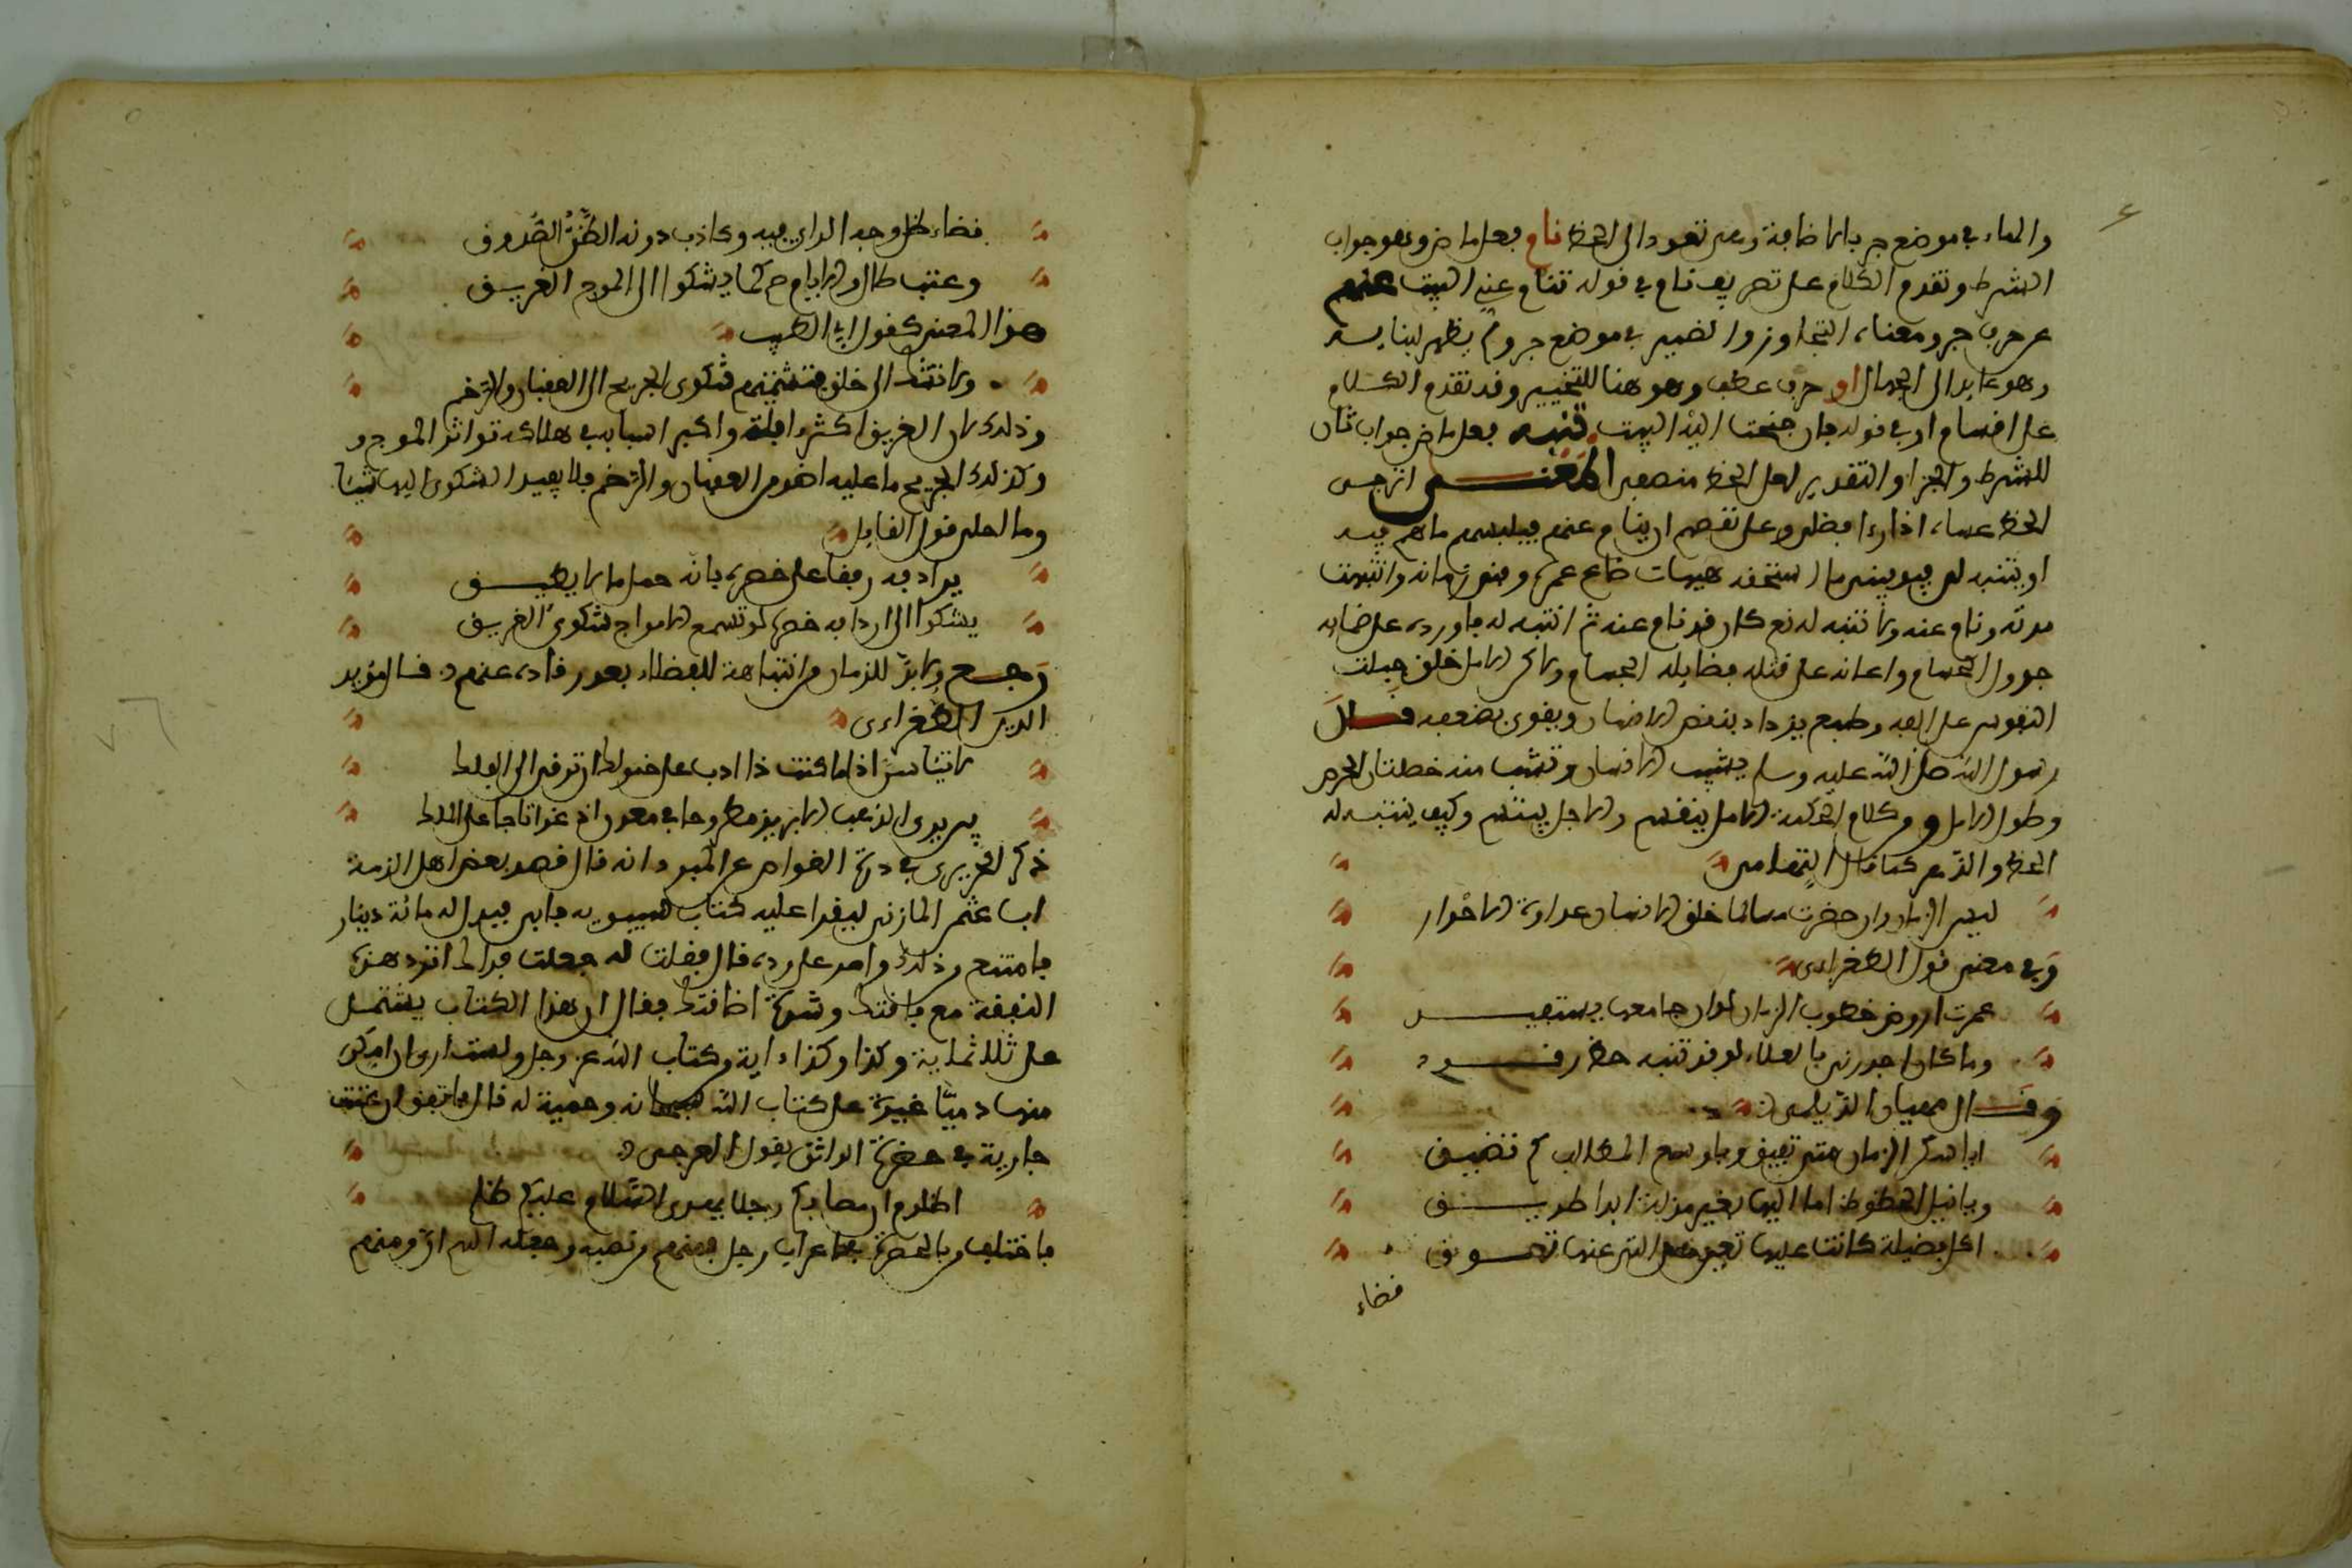 والهاء في موضع جر بالاضافة وهي تعود الى الحظ نام فعل ماض وهو جواب
الشرط وتقدم الكلام على تصريف نام في قوله تنام عيني البيت عنهم
عن حرف جر ومعناه التجاوز والضمير في موضع جر ولم يظهر لبنايه
وهو عايد الى الجهال او حرف عطف وهو هنا للتخيير وقد تقدم الكلام
على اقسام او في قوله فان جنحت اليه البيت تنبه فعل ماض جواب ثان
للشرط والجزا والتقدير لعل الحظ منصف المعنى اترجى
الحظ عساه اذا راى فضلي وعلى نقصهم ان ينام عنهم فيلبسهم ما هم فيه
او يتنبه لي فيوفيني ما استحقه هيهات ضاع عمره وفنى زمانه وانتهت
مدته ونام عنه ولا تنبه له نعم كان قد نام عنه ثم انتبه له فاورده على ضمايه
جدول الحسام واعانه على قتله فضايله الجسام ولاكن الامل خلق جبلت
النفوس على الفه وطبع يزداد بنقص الانسان ويقوى بضعفه قال
رسول الله صلى الله عليه وسلم يشيب الانسان وتشب منه خصلتان الحرص
وطول الامل ومن كلام الحكمة الامل ينفسهم والاجل يبتسم وكيف يتنبه له
الحظ والدهر كما قال التهامي
ليس الزمان وان حرصت مسالما خلق الزمان عداوة الاحرار
وفي معنى قول الطغرايى
عمرت اروض خطوب الزمان لو ان جامعها يستفيد
وما كان اجدرني بالعلاء لو قد تنبه حظ رقود
وقال مهيار الديلمي
ايا سكر الزمان متى تفيق ويا وسع المطالب كم تضيق
ويا نيل الحظوظ اما اليها بغير مذلة ابدا طريق
اكل فضيلة كانت عليها تعين هي التي عنها تعوق
قضاء
قضاء كل وجه الراى فيه وكاذب دونه الظن الصدوق
وعتب طال والايام خرس كما يشكوا الى الموج الغريق
هذا المعنى كقول ابى الطيب
ولا تشك الى خلق فتشمتهم شكوى الجريح الى العقبان والرخم
وذلك لان الغريق اكثر افاته واكبر اسبابه في هلاكه تواتر الموج
وكذلك الجريح ما عليه اضر من العقبان والرخم فلا يفيد الشكوى اليها شيئا
وما احلى قول القايل
يرادفه رفقا على خصره بانه حمل ما لا يطيق
يشكوا الى اردافه خصره لو تسمع الامواج شكوى الغريق
رجع ولابد للزمان من انتباهة للفضلاء بعد رقاده عنهم قال مؤيد
الدين الطغراءى
لا تياسن اذا ما كنت ذا ادب على خمولك ان ترقى الى الفلك
بين يرى الذهب الابريز مطروحا في معدن اذ غدا تاجا على الملك
ذكر الحريرى في درة الغواص عن المبرد انه قال قصد بعض اهل الذمة
ابا عثمن المازني ليقرا عليه كتاب سيبويه فابى فبذل له مائة دينار
فامتنع من ذلك واصر على رده قال فقلت له جعلت فداك اترد هذه
النفقة مع فاقتك وشدة اضاقتك فقال ان هذا الكتاب يشتمل
على ثلاثماية وكذا وكذا ءاية من كتاب الله عز وجل ولست ارى ان امكن
منها ذميا غيرة على كتاب الله سبحانه وحمية له قال فاتفق ان غنت
جارية في حضرة الواثق بقول العرجى
اظلوم ان مصابكم رجلا يهدى السلام عليكم ظلم
فاختلف من بالحضرة في اعراب رجل فمنهم من نصبه وجعله اسم ان ومنهم